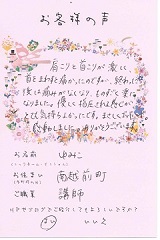 お客様の声
肩こりと首こりが激しく
首をまわすと痛かったのですが、終わった
後は痛みがなくなり、ものすごく楽に
なりました。優しく指圧されて
とても気持ちよかったです。
感動しました。ありがとうございます。
お名前 ゆみこ
お住まい 南越前町
ご職業 講師
はい いいえ